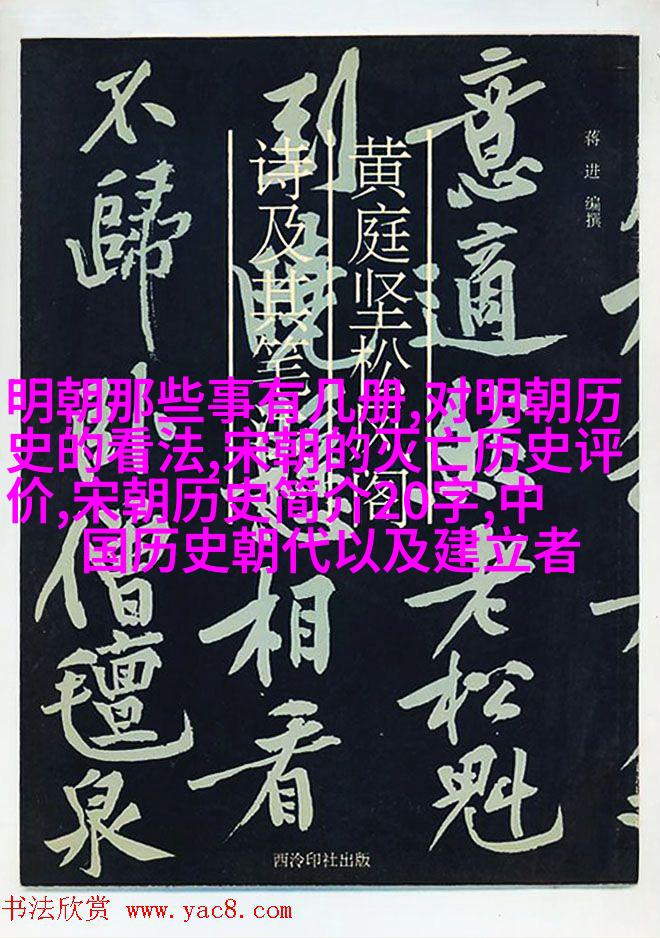 意適
老松魁
到
相看
不歸卧僧氈泉
黄庭坚松
阁
诗及其笔
蒋进 编撰
明朝那些事有几册,对明朝历
史的看法,宋朝的灭亡历史评
价,宋朝历史简介20字,中
国历史朝代以及建立者
西泠印社出版
书法欣赏 www.yac8.com